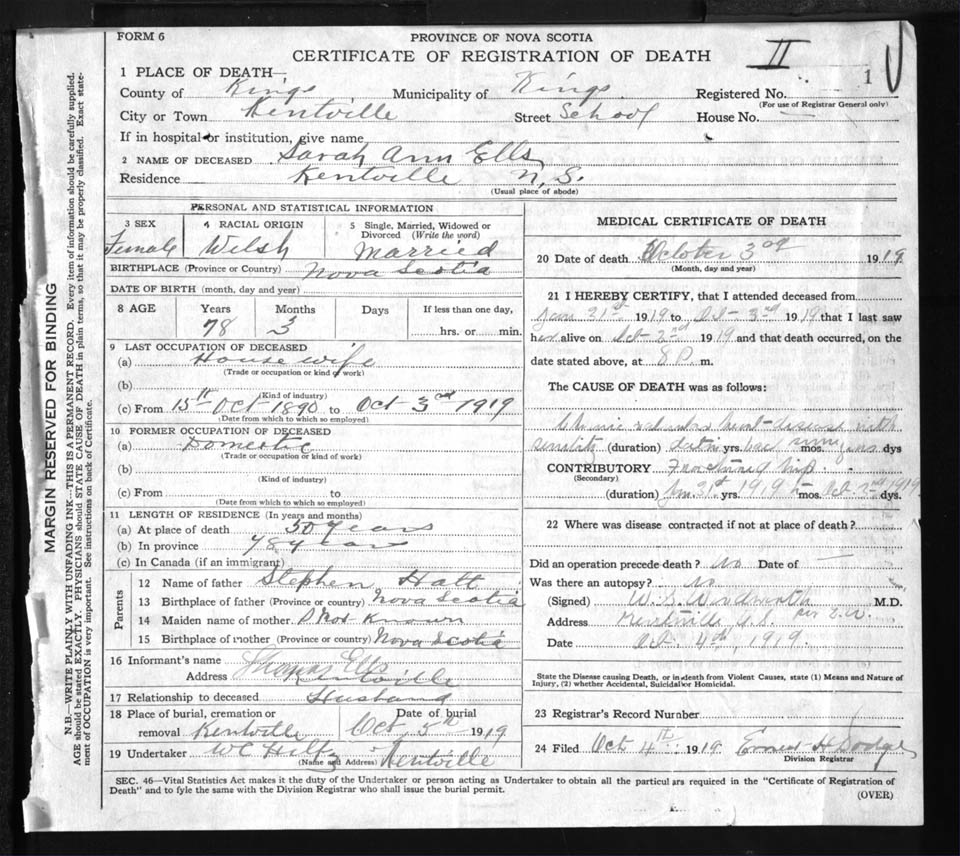 FORM 6
PROVINCE OF NOVA SCOTIA
CERTIFICATE OF REGISTRATION OF DEATH
II
1
1 PLACE OF DEATH—
County of Kings Municipality of Kings Registered No.
(For use of Registrar General only)
City or Town Kentville Street School House No. —
If in hospital or institution, give name
2 NAME OF DECEASED Sarah Ann Ells
Residence Kentville N.S.
(Usual place of abode)
PERSONAL AND STATISTICAL INFORMATION
3 SEX
Female
4 RACIAL ORIGIN
Welsh
5 Single, Married, Widowed or Divorced (Write the word)
Married
BIRTHPLACE (Province or Country) Nova Scotia
DATE OF BIRTH (month, day and year)
8 AGE Years Months Days If less than one day,
78 3 hrs. or min.
9 LAST OCCUPATION OF DECEASED
(a) House wife
(Trade or occupation or kind of work)
(b)
(Kind of industry)
(c) From 15th Oct 1890 to Oct 3rd 1919
(Date from which to which so employed)
10 FORMER OCCUPATION OF DECEASED
(a) Domestic
(Trade or occupation or kind of work)
(b)
(Kind of industry)
(c) From to
(Date from which to which so employed)
11 LENGTH OF RESIDENCE (In years and months)
(a) At place of death 50 Years
(b) In province 78 years
(c) In Canada (if an immigrant)
Parents
12 Name of father Stephen Hatt
13 Birthplace of father (Province or country) Nova Scotia
14 Maiden name of mother Not Known
15 Birthplace of mother (Province or country) Nova Scotia
16 Informant's name Thomas Ells
Address Kentville
17 Relationship to deceased Husband
18 Place of burial, cremation or removal Kentville
Date of burial
Oct 5th 1919
19 Undertaker W C Hiltz Kentville
(Name and Address)
MEDICAL CERTIFICATE OF DEATH
20 Date of death October 3rd 1919
(Month, day and year)
21 I HEREBY CERTIFY, that I attended deceased from
Jan 21st 1919 to Oct 3rd 1919 that I last saw
her alive on Oct 2nd 1919 and that death occurred, on the
date stated above, at 8 P. m.
The CAUSE OF DEATH was as follows:
Chronic heart disease with
senility (duration) yrs. mos. dys
CONTRIBUTORY Fractured hip
(Secondary)
(duration) Jan. 21st yrs. 1919 to mos. Oct. 2nd 1919 dys.
22 Where was disease contracted if not at place of death?
Did an operation precede death? No Date of —
Was there an autopsy? No
(Signed) M.D.
Address
Date Oct. 4th, 1919.
State the Disease causing Death, or in death from Violent Causes, state (1) Means and Nature of
Injury, (2) whether Accidental, Suicidal or Homicidal.
23 Registrar's Record Number
24 Filed Oct 4th 1919 Ernest H Dodge
Division Registrar
SEC. 46—Vital Statistics Act makes it the duty of the Undertaker or person acting as Undertaker to obtain all the particulars required in the "Certificate of Registration of
Death" and to fyle the same with the Division Registrar who shall issue the burial permit.
(OVER)
MARGIN RESERVED FOR BINDING
N.B.—WRITE PLAINLY WITH UNFADING INK—THIS IS A PERMANENT RECORD. Every item of information should be carefully supplied.
AGE should be stated EXACTLY. PHYSICIANS should STATE CAUSE OF DEATH in plain terms, so that it may be properly classified. Exact state-
ment of OCCUPATION is very important. See instructions on back of Certificate.